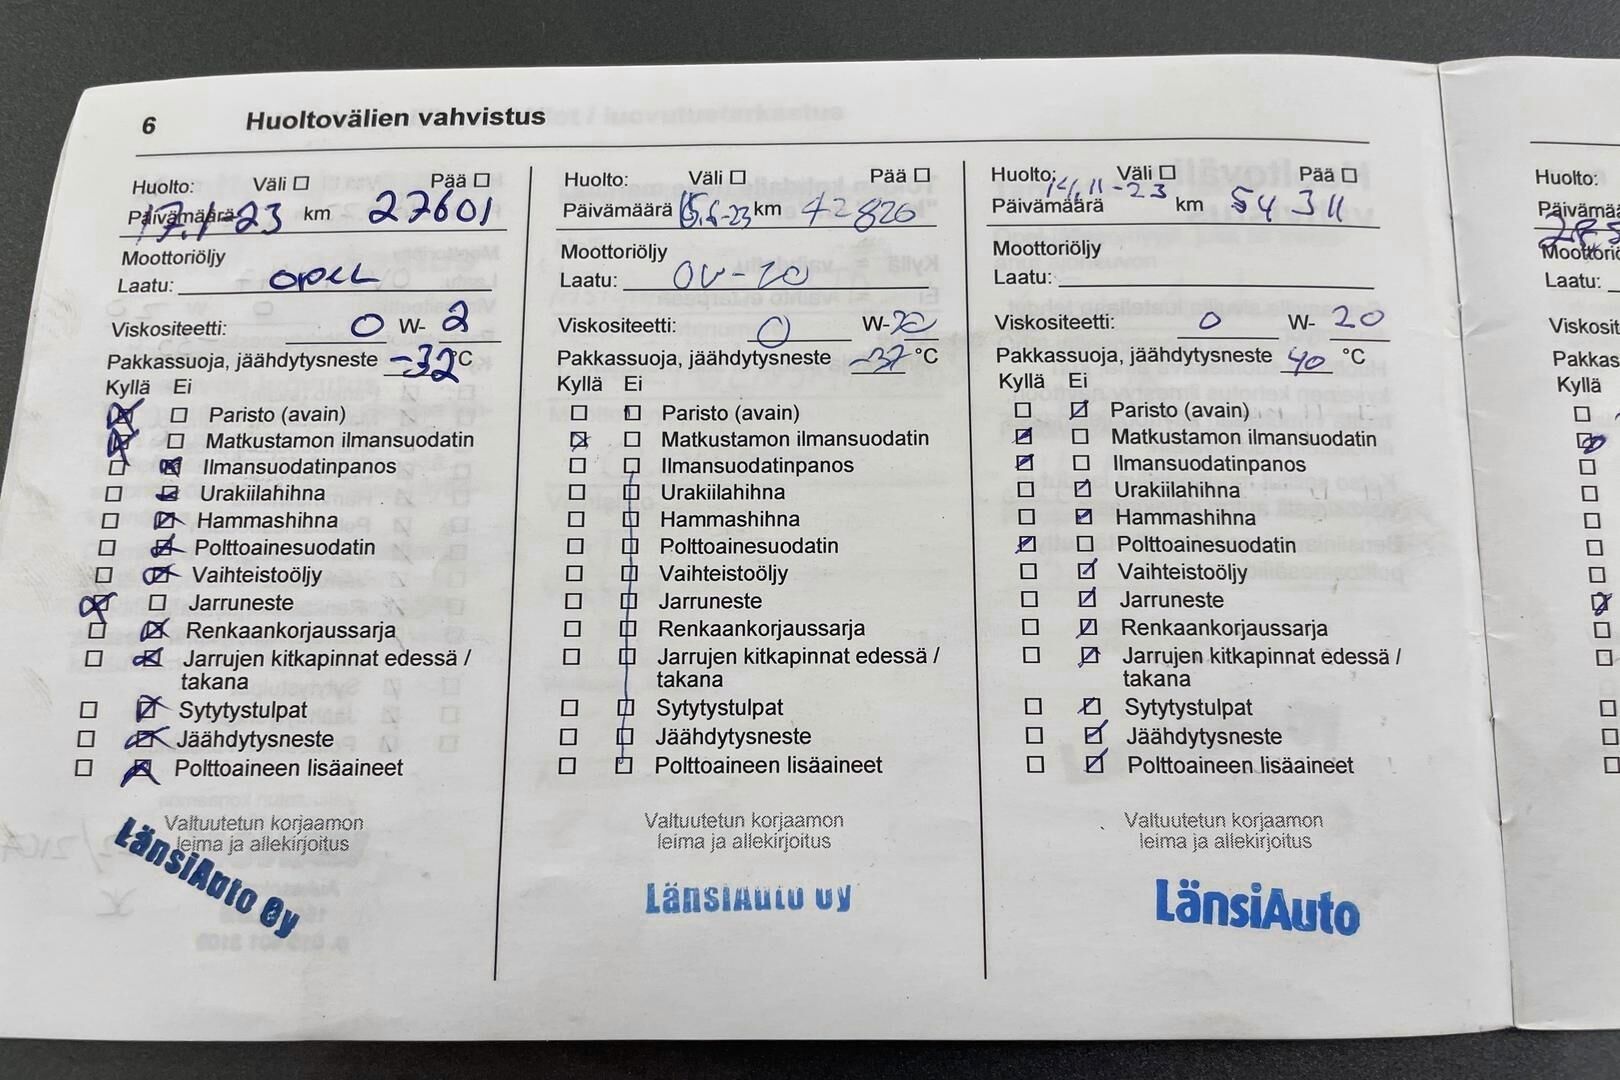 6 Huoltovälien vahvistus
Huolto: Väli Pää
Päivämäärä 17.1-23 km 27601
Moottoriöljy
Laatu: OPEL
Viskositeetti: 0 W- 2
Pakkassuoja, jäähdytysneste -32 °C
Kyllä Ei
Paristo (avain)
Matkustamon ilmansuodatin
Ilmansuodatinpanos
Urakiilahihna
Hammashihna
Polttoainesuodatin
Vaihteistoöljy
Jarruneste
Renkaankorjaussarja
Jarrujen kitkapinnat edessä /
takana
Sytytystulpat
Jäähdytysneste
Polttoaineen lisäaineet
Valtuutetun korjaamon
leima ja allekirjoitus
LänsiAuto Oy
Huolto: Väli Pää
Päivämäärä 15.6-23 km 42820
Moottoriöljy
Laatu: OV-20
Viskositeetti: 0 W- 20
Pakkassuoja, jäähdytysneste -37 °C
Kyllä Ei
Paristo (avain)
Matkustamon ilmansuodatin
Ilmansuodatinpanos
Urakiilahihna
Hammashihna
Polttoainesuodatin
Vaihteistoöljy
Jarruneste
Renkaankorjaussarja
Jarrujen kitkapinnat edessä /
takana
Sytytystulpat
Jäähdytysneste
Polttoaineen lisäaineet
Valtuutetun korjaamon
leima ja allekirjoitus
LänsiAuto Oy
Huolto: Väli Pää
Päivämäärä 14.11-23 km 54 311
Moottoriöljy
Laatu:
Viskositeetti: 0 W- 20
Pakkassuoja, jäähdytysneste 40 °C
Kyllä Ei
Paristo (avain)
Matkustamon ilmansuodatin
Ilmansuodatinpanos
Urakiilahihna
Hammashihna
Polttoainesuodatin
Vaihteistoöljy
Jarruneste
Renkaankorjaussarja
Jarrujen kitkapinnat edessä /
takana
Sytytystulpat
Jäähdytysneste
Polttoaineen lisäaineet
Valtuutetun korjaamon
leima ja allekirjoitus
LänsiAuto
Huolto:
Päivämää
Moottoriö
Laatu:
Viskosit
Pakkas
Kyllä